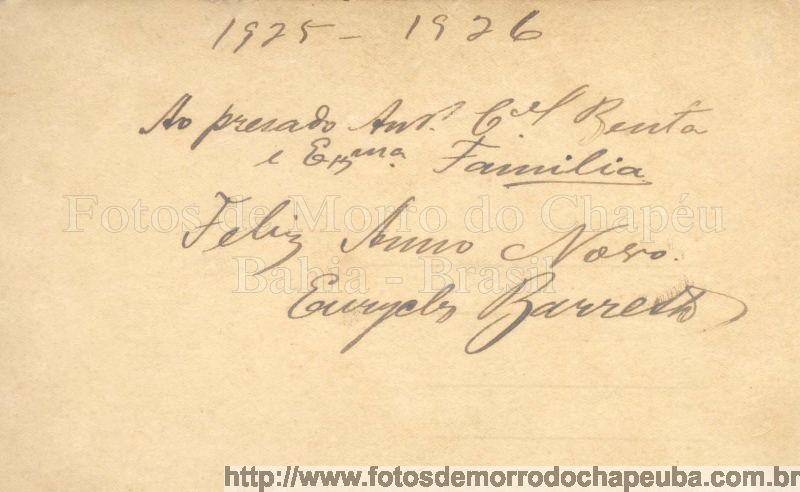 1925 - 1926
Ao presado Am.º C.el Benta
e Exma. Familia
Fotos de Morro do Chapéu
Feliz Anno Novo.
Bahia - Brasil
Eurycles Barretto
http://www.fotosdemorrodochapeuba.com.br